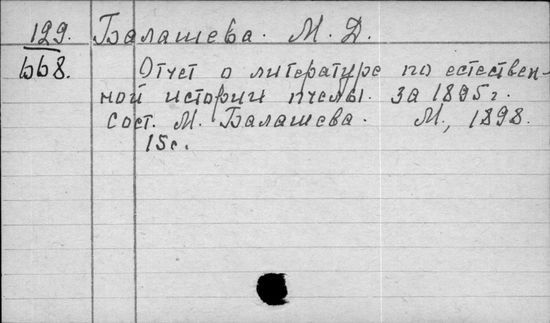 129. Балашева. М. Д.
668. Отчет о литературе по естествен-
ной истории пчелы. за 1895г.
сост. М. Балашева. М., 1898.
15с.